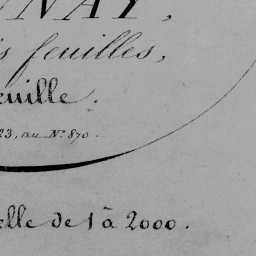 NAY,
s feuilles,
euille.
23, au N.º 870.
elle de 1 à 2000.